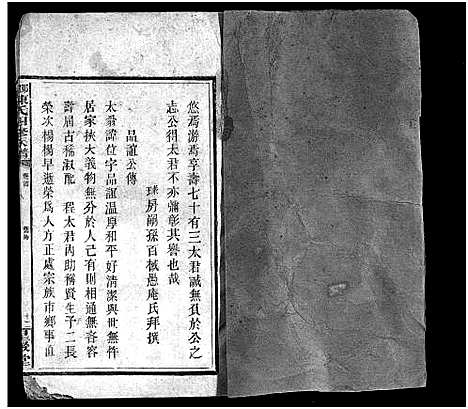 悠焉游焉享壽七十有三太君誠無負於公之
志公得太君不亦彌彰其譽也哉
球房嗣孫百棫愚庵氏拜撰
品誼公傳
太翁諱位字品誼溫厚和平好清潔與世無忤
居家挾大義物無分於人己有則相通無吝容
壽屆古稀淑配程太君內助稱賢生子二長
榮次楊楊早逝榮爲人方正處宗族市鄉事直
陳氏